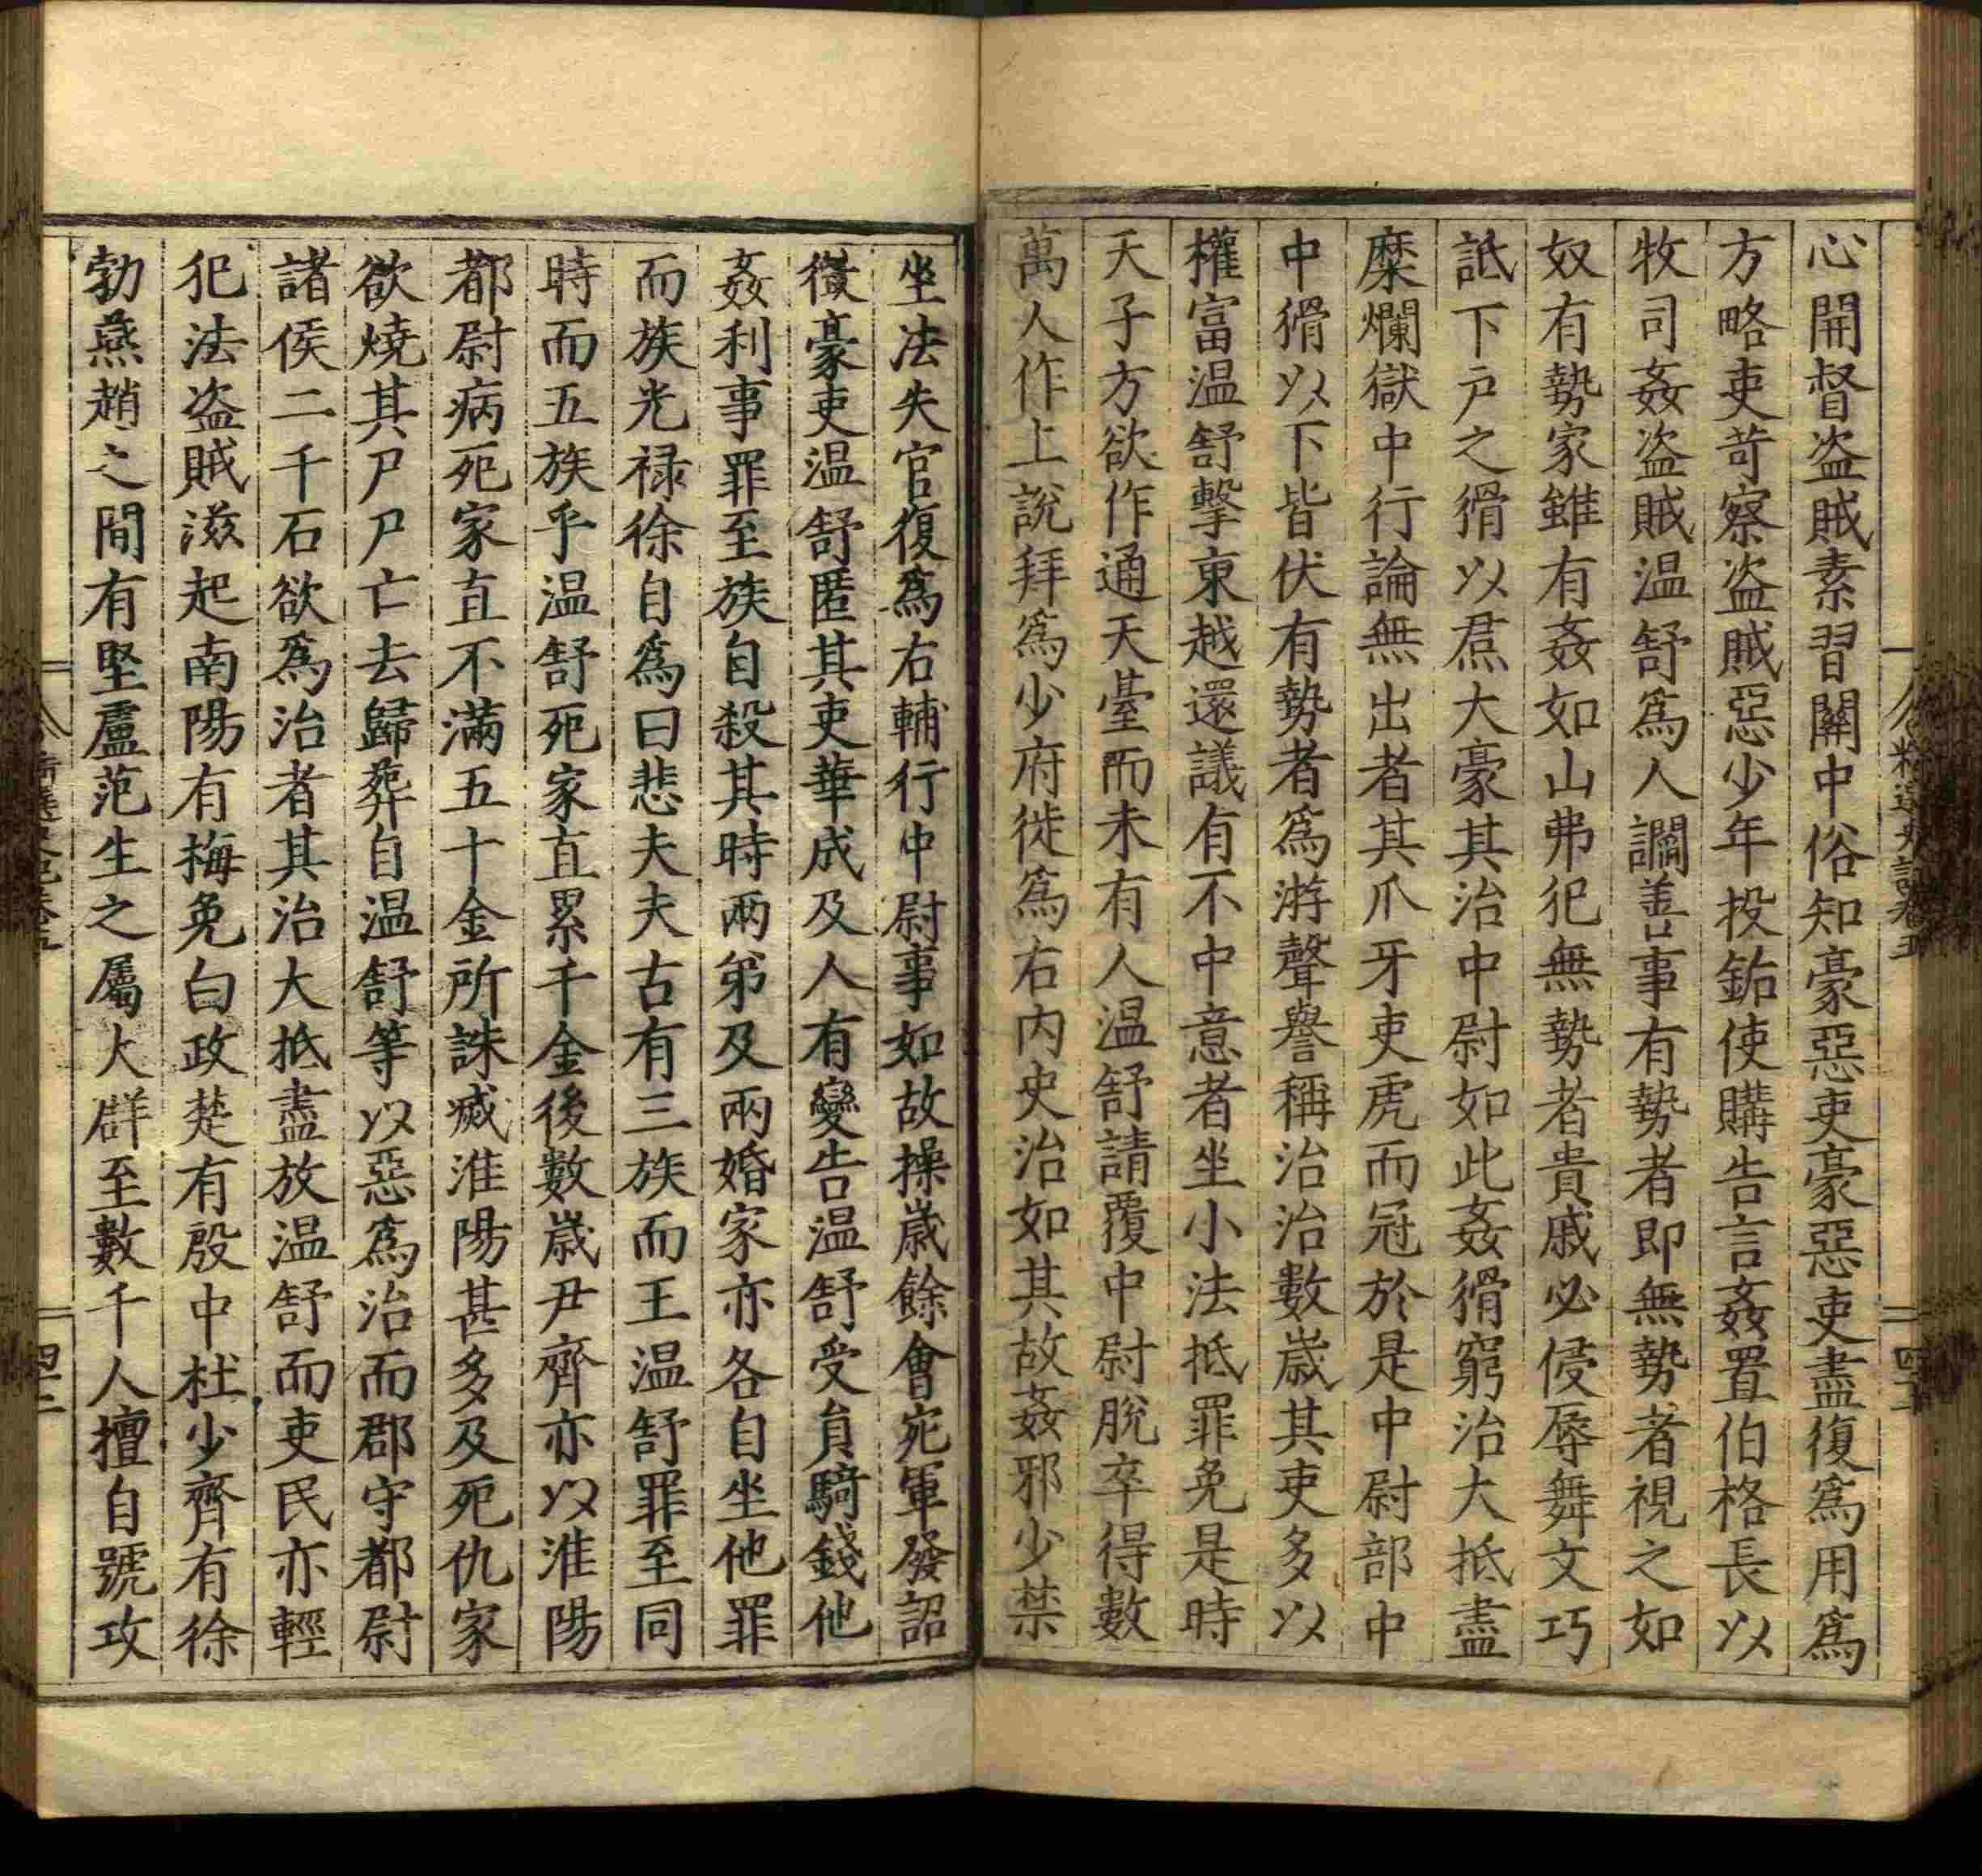 心開督盗賊素習關中俗知豪惡吏豪惡吏盡復爲用爲
方略吏苛察盗賊惡少年投鉆使購告言姦置伯格長以
牧司姦盗賊温舒爲人讇善事有勢者即無勢者視之如
奴有勢家雖有姦如山弗犯無勢者貴戚必侵辱舞文巧
詆下户之猾以焄大豪其治中尉如此姦猾窮治大抵盡
糜爛獄中行論無出者其爪牙吏虎而冠於是中尉部中
中猾以下皆伏有勢者爲游聲譽稱治治數歲其吏多以
權富温舒擊東越還議有不中意者坐小法抵罪免是時
天子方欲作通天臺而未有人温舒請覆中尉脫卒得數
萬人作上說拜爲少府徙爲右内史治如其故姦邪少禁
坐法失官復爲右輔行中尉事如故操歲餘會宛軍發詔
徵豪吏温舒匿其吏華成及人有變告温舒受員騎錢他
姦利事罪至族自殺其時兩弟及兩婚家亦各自坐他罪
而族光禄徐自爲曰悲夫夫古有三族而王温舒罪至同
時而五族乎温舒死家直累千金後數歲尹齊亦以淮陽
都尉病死家直不滿五十金所誅滅淮陽甚多及死仇家
欲燒其尸尸亡去歸葬自温舒等以惡爲治而郡守都尉
諸侯二千石欲爲治者其治大抵盡放温舒而吏民亦輕
犯法盗賊滋起南陽有梅免白政楚有殷中杜少齊有徐
勃燕趙之間有堅盧范生之屬大群至數千人擅自號攻